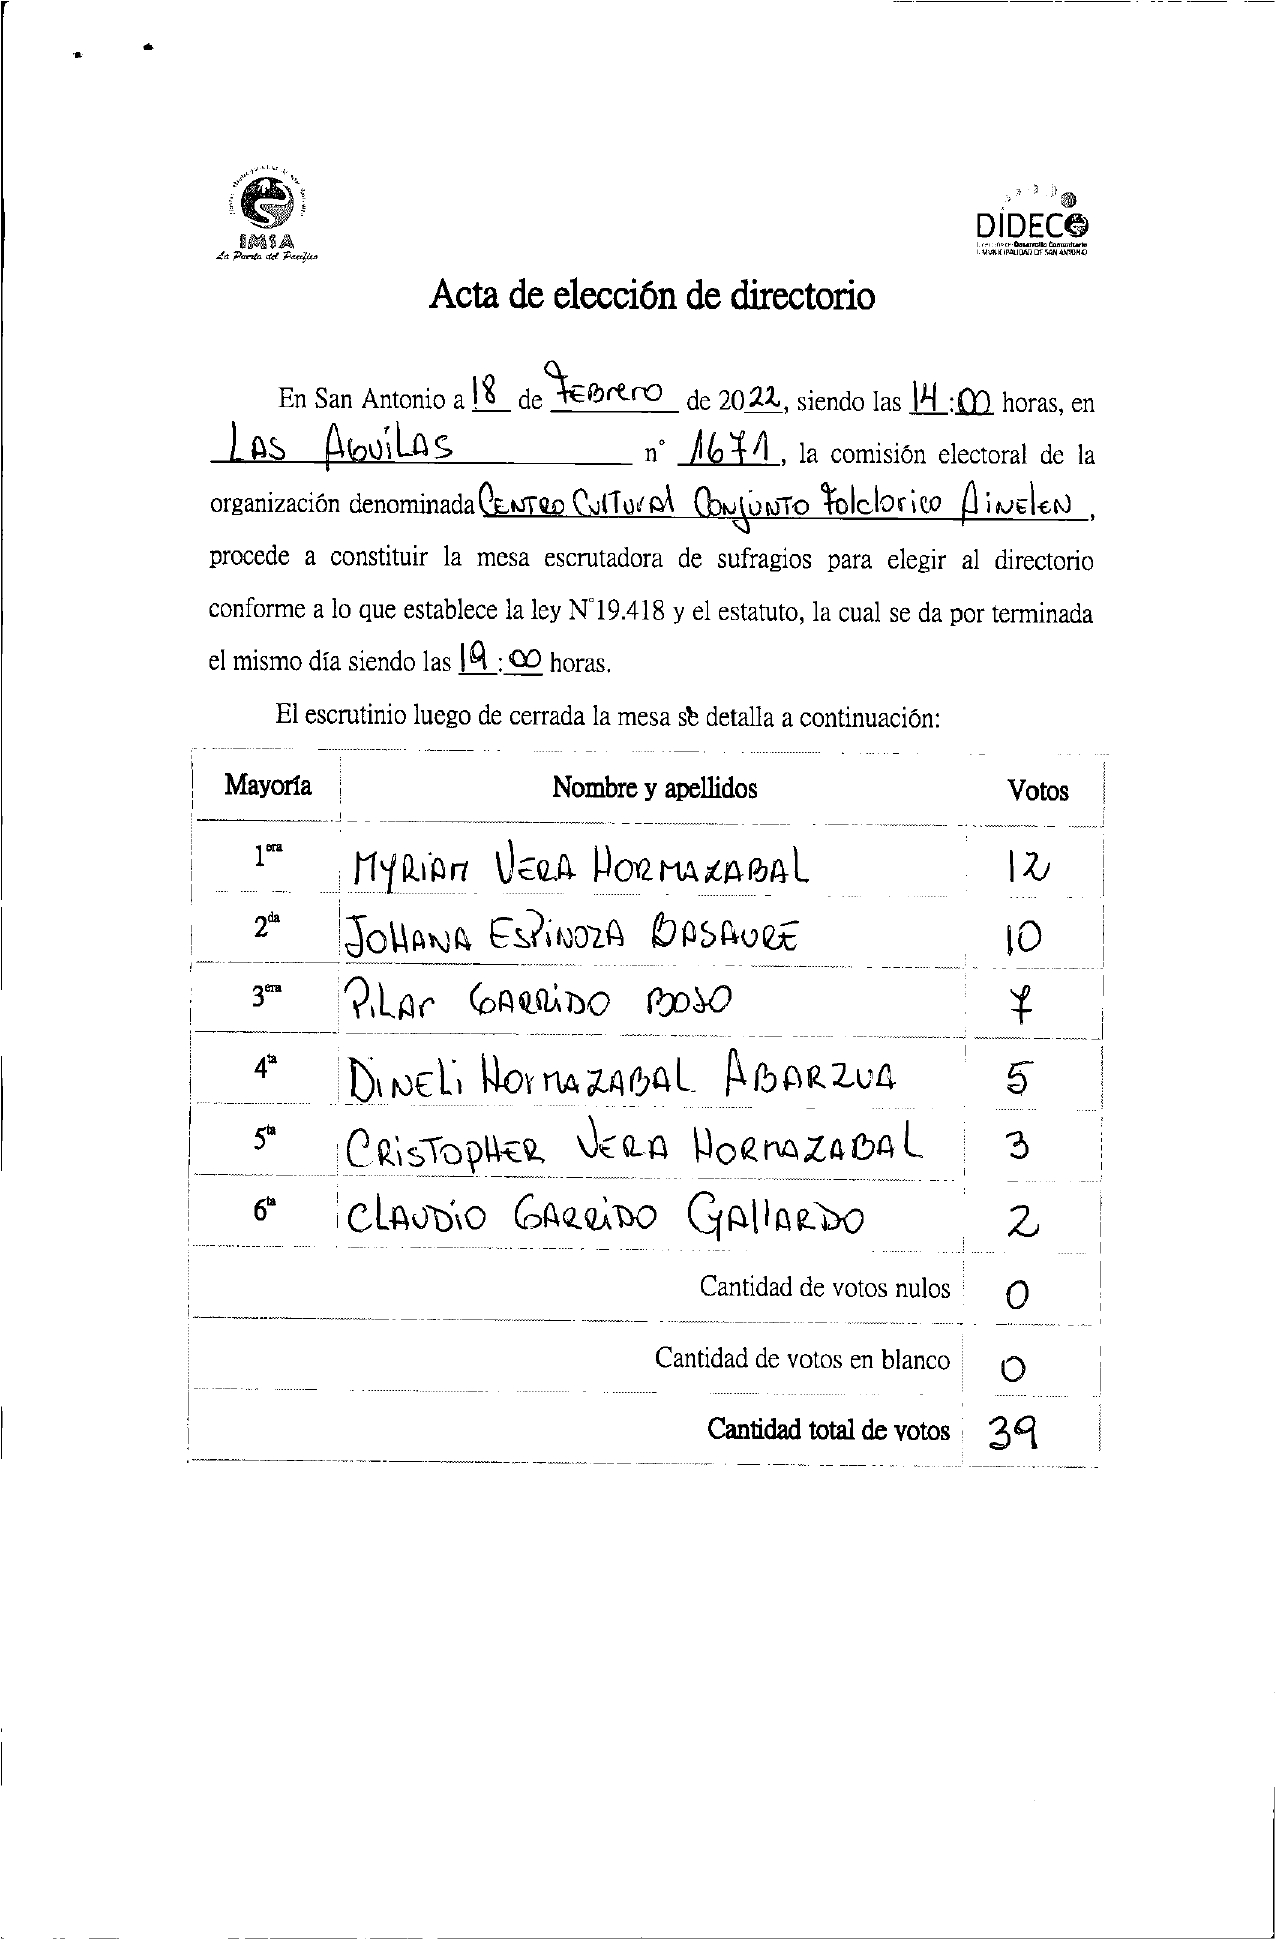 IMSA
La Puerta del Pacífico
DIDECO
I. MUNICIPALIDAD DE SAN ANTONIO
Acta de elección de directorio
En San Antonio a 18 de Febrero de 2022, siendo las 14:00 horas, en
Las Aguilas n° 1671, la comisión electoral de la
organización denominada Centro Cultural Conjunto Folclorico Ainelen,
procede a constituir la mesa escrutadora de sufragios para elegir al directorio
conforme a lo que establece la ley N°19.418 y el estatuto, la cual se da por terminada
el mismo día siendo las 19:00 horas.
El escrutinio luego de cerrada la mesa se detalla a continuación:
Mayoría Nombre y apellidos Votos
1era MYRIAM VERA HORMAZABAL 12
2da JOHANA ESPINOZA BASAURE 10
3era PILAR GARRIDO BOSO 7
4ta DINELI HORMAZABAL ABARZUA 5
5ta CRISTOPHER VERA HORMAZABAL 3
6ta CLAUDIO GARRIDO GALLARDO 2
Cantidad de votos nulos 0
Cantidad de votos en blanco 0
Cantidad total de votos 39